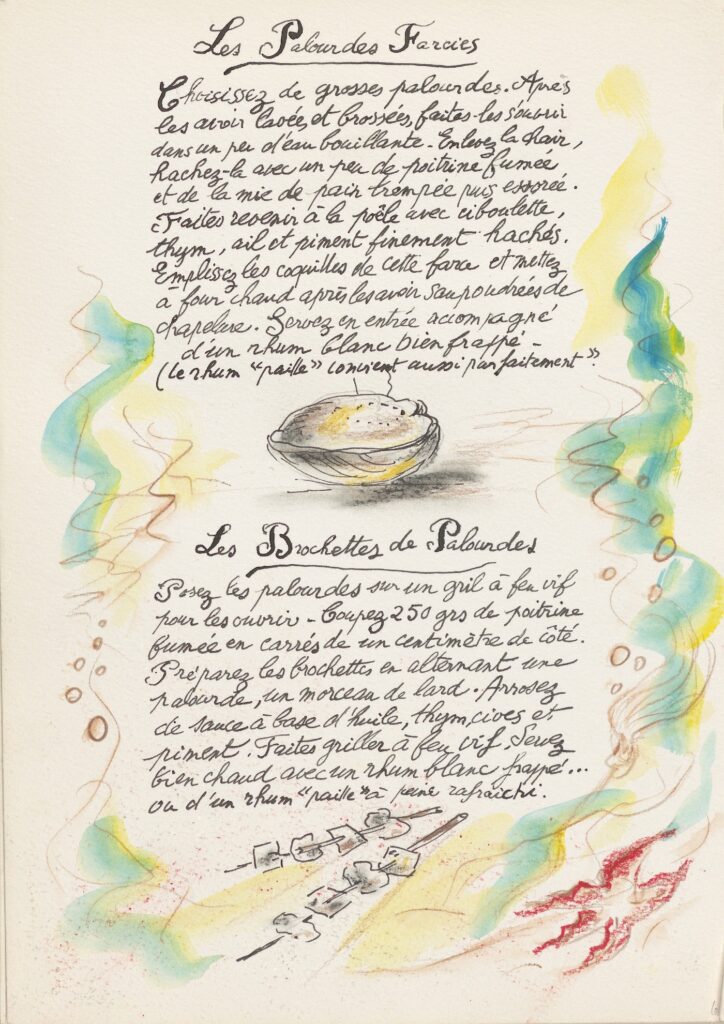 Les Palourdes Farcies
Choisissez de grosses palourdes. Après
les avoir lavées et brossées, faites-les s'ouvrir
dans un peu d'eau bouillante - Enlevez la chair,
hachez-la avec un peu de poitrine fumée
et de la mie de pain trempée puis essorée.
Faites revenir à la poêle avec ciboulette,
thym, ail et piment finement hachés.
Emplissez les coquilles de cette farce et mettez
à four chaud après les avoir saupoudrées de
chapelure. Servez en entrée accompagné
d'un rhum blanc bien frappé -
(Le rhum "paille" convient aussi parfaitement".
Les Brochettes de Palourdes
Posez les palourdes sur un gril à feu vif
pour les ouvrir - Coupez 250 grs de poitrine
fumée en carrés de un centimètre de côté.
Préparez les brochettes en alternant une
palourde, un morceau de lard. Arrosez
de sauce à base d'huile, thym, cives et
piment. Faites griller à feu vif. Servez
bien chaud avec un rhum blanc frappé...
ou d'un rhum "paille" à peine rafraîchi.